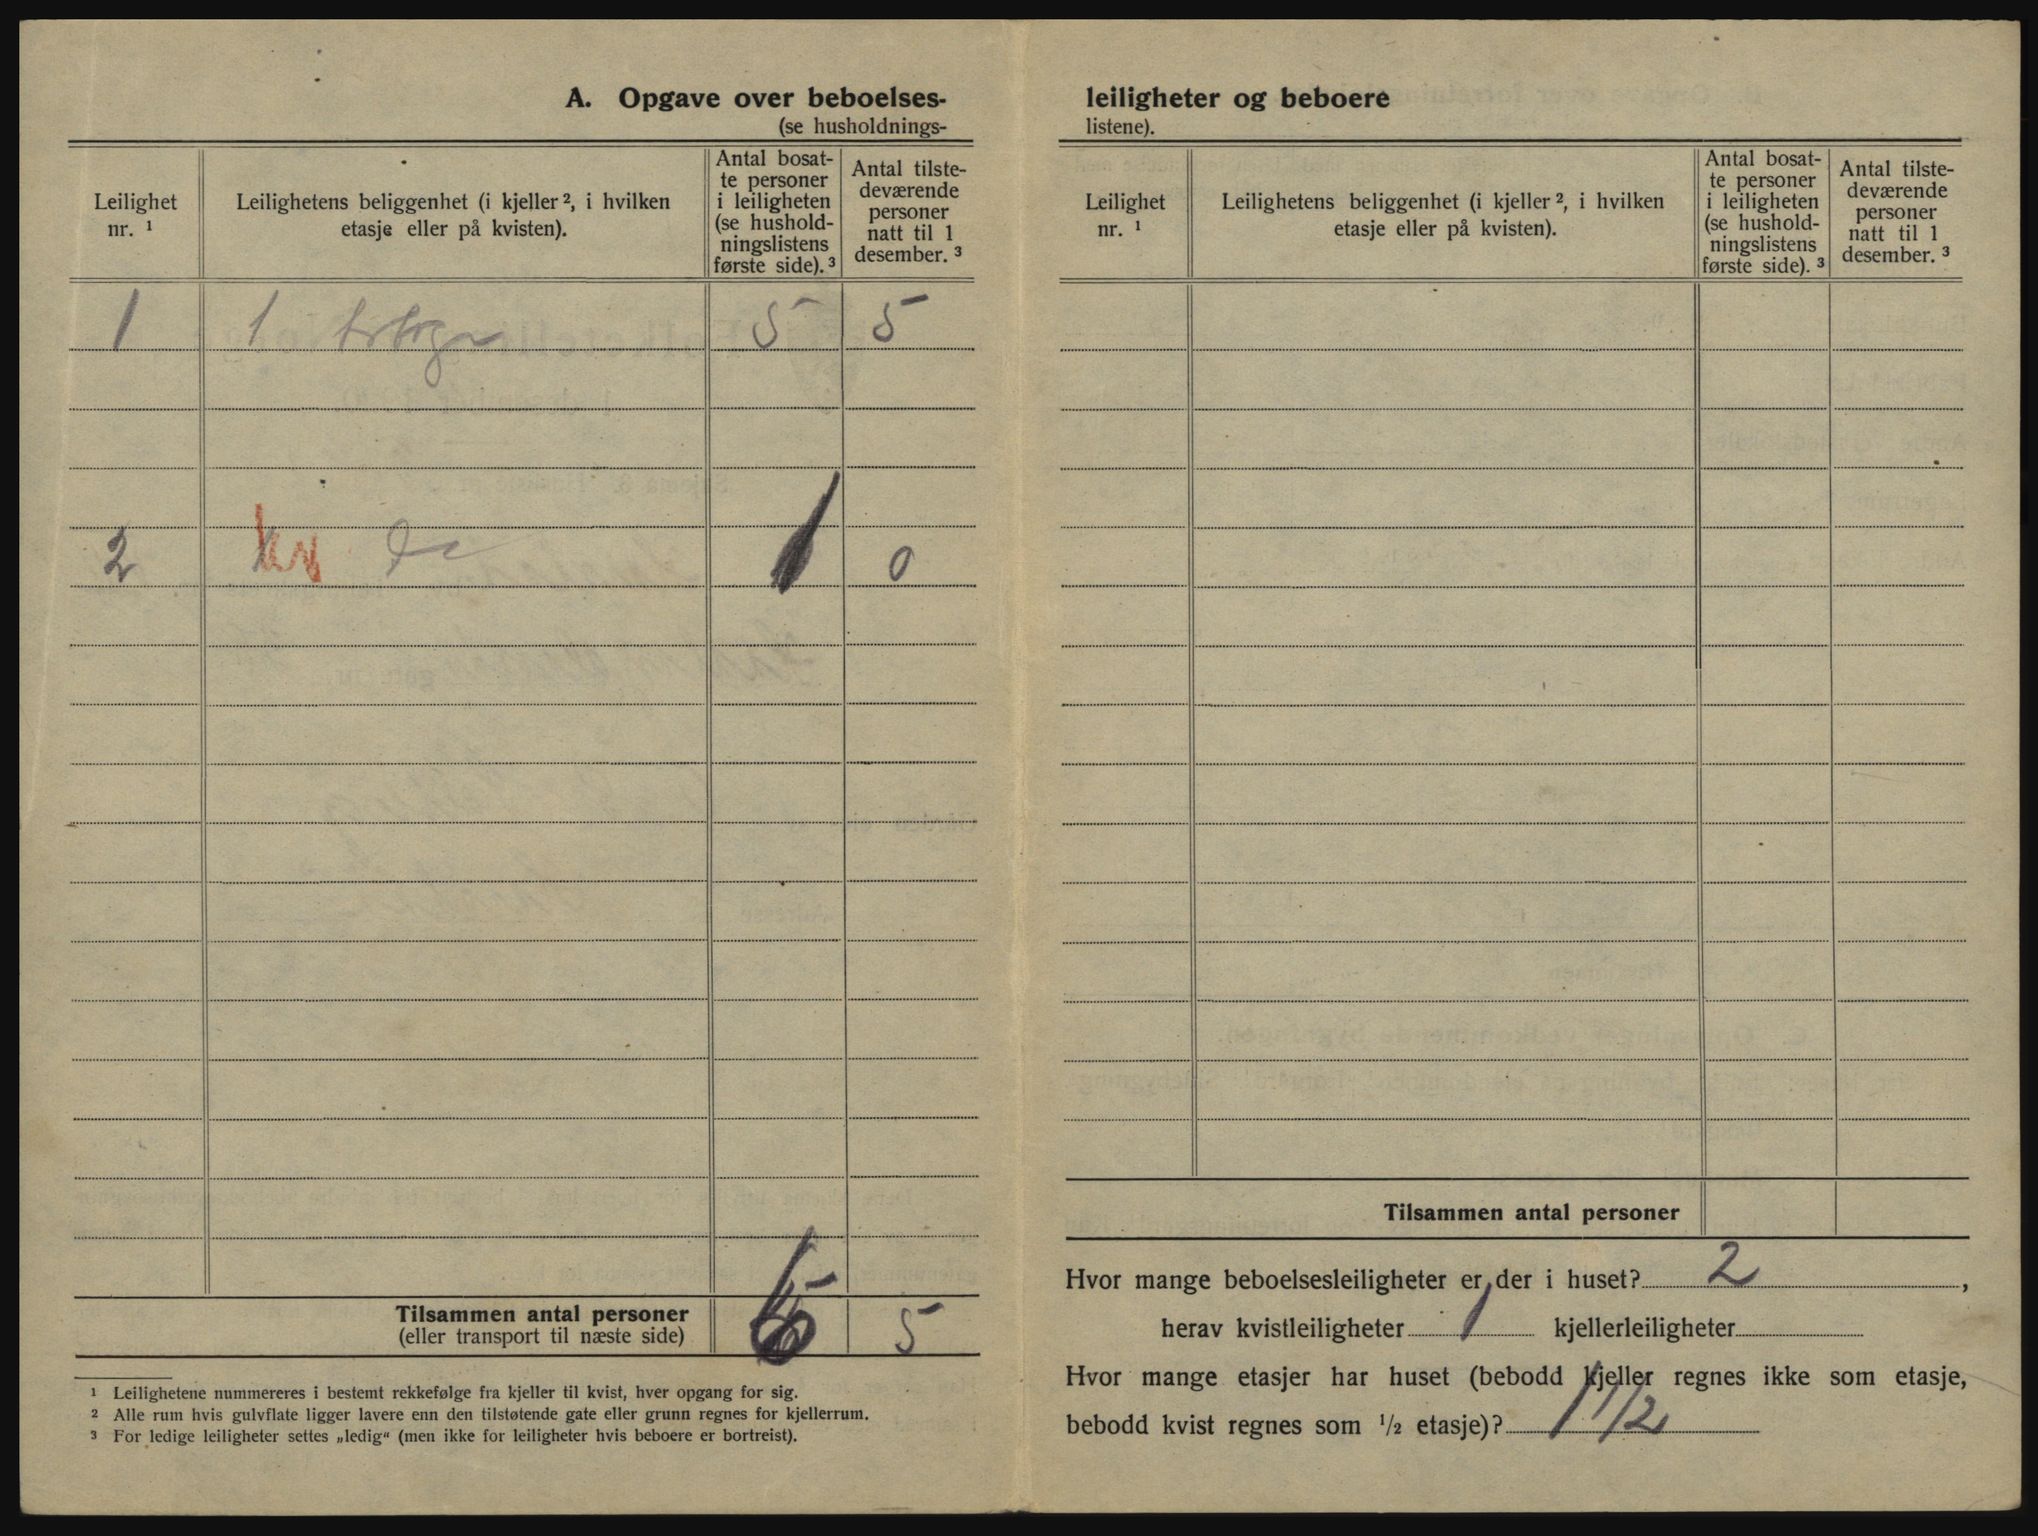 A. Opgave over beboelses-
(se husholdnings-
Leilighet
nr. ¹
Leilighetens beliggenhet (i kjeller ², i hvilken
etasje eller på kvisten).
Antal bosat-
te personer
i leiligheten
(se hushold-
ningslistens
første side). ³
Antal tilste-
deværende
personer
natt til 1
desember. ³
1 1 5 5
2 kv do 1 0
Tilsammen antal personer
(eller transport til næste side)
6 5
¹ Leilighetene nummereres i bestemt rekkefølge fra kjeller til kvist, hver opgang for sig.
² Alle rum hvis gulvflate ligger lavere enn den tilstøtende gate eller grunn regnes for kjellerrum.
³ For ledige leiligheter settes „ledig“ (men ikke for leiligheter hvis beboere er bortreist).
leiligheter og beboere
listene).
Leilighet
nr. ¹
Leilighetens beliggenhet (i kjeller ², i hvilken
etasje eller på kvisten).
Antal bosat-
te personer
i leiligheten
(se hushold-
ningslistens
første side). ³
Antal tilste-
deværende
personer
natt til 1
desember. ³
Tilsammen antal personer
Hvor mange beboelsesleiligheter er der i huset? 2 ,
herav kvistleiligheter 1 kjellerleiligheter
Hvor mange etasjer har huset (bebodd kjeller regnes ikke som etasje,
bebodd kvist regnes som ¹/₂ etasje)? 1 1/2